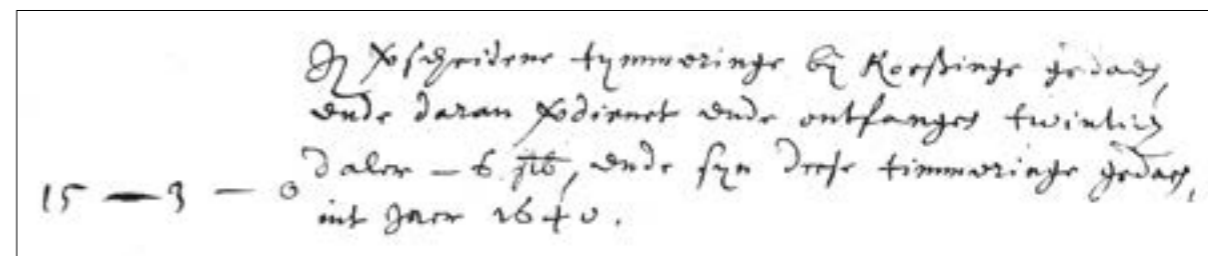 verscheidene tymmeringe by Roessinge gedaen,
ende daran verdienet ende ontfangen twintich
daler – 6 st, ende syn deese timmeringe gedaen,
15 — 3 — 0 int Jaer 1640.